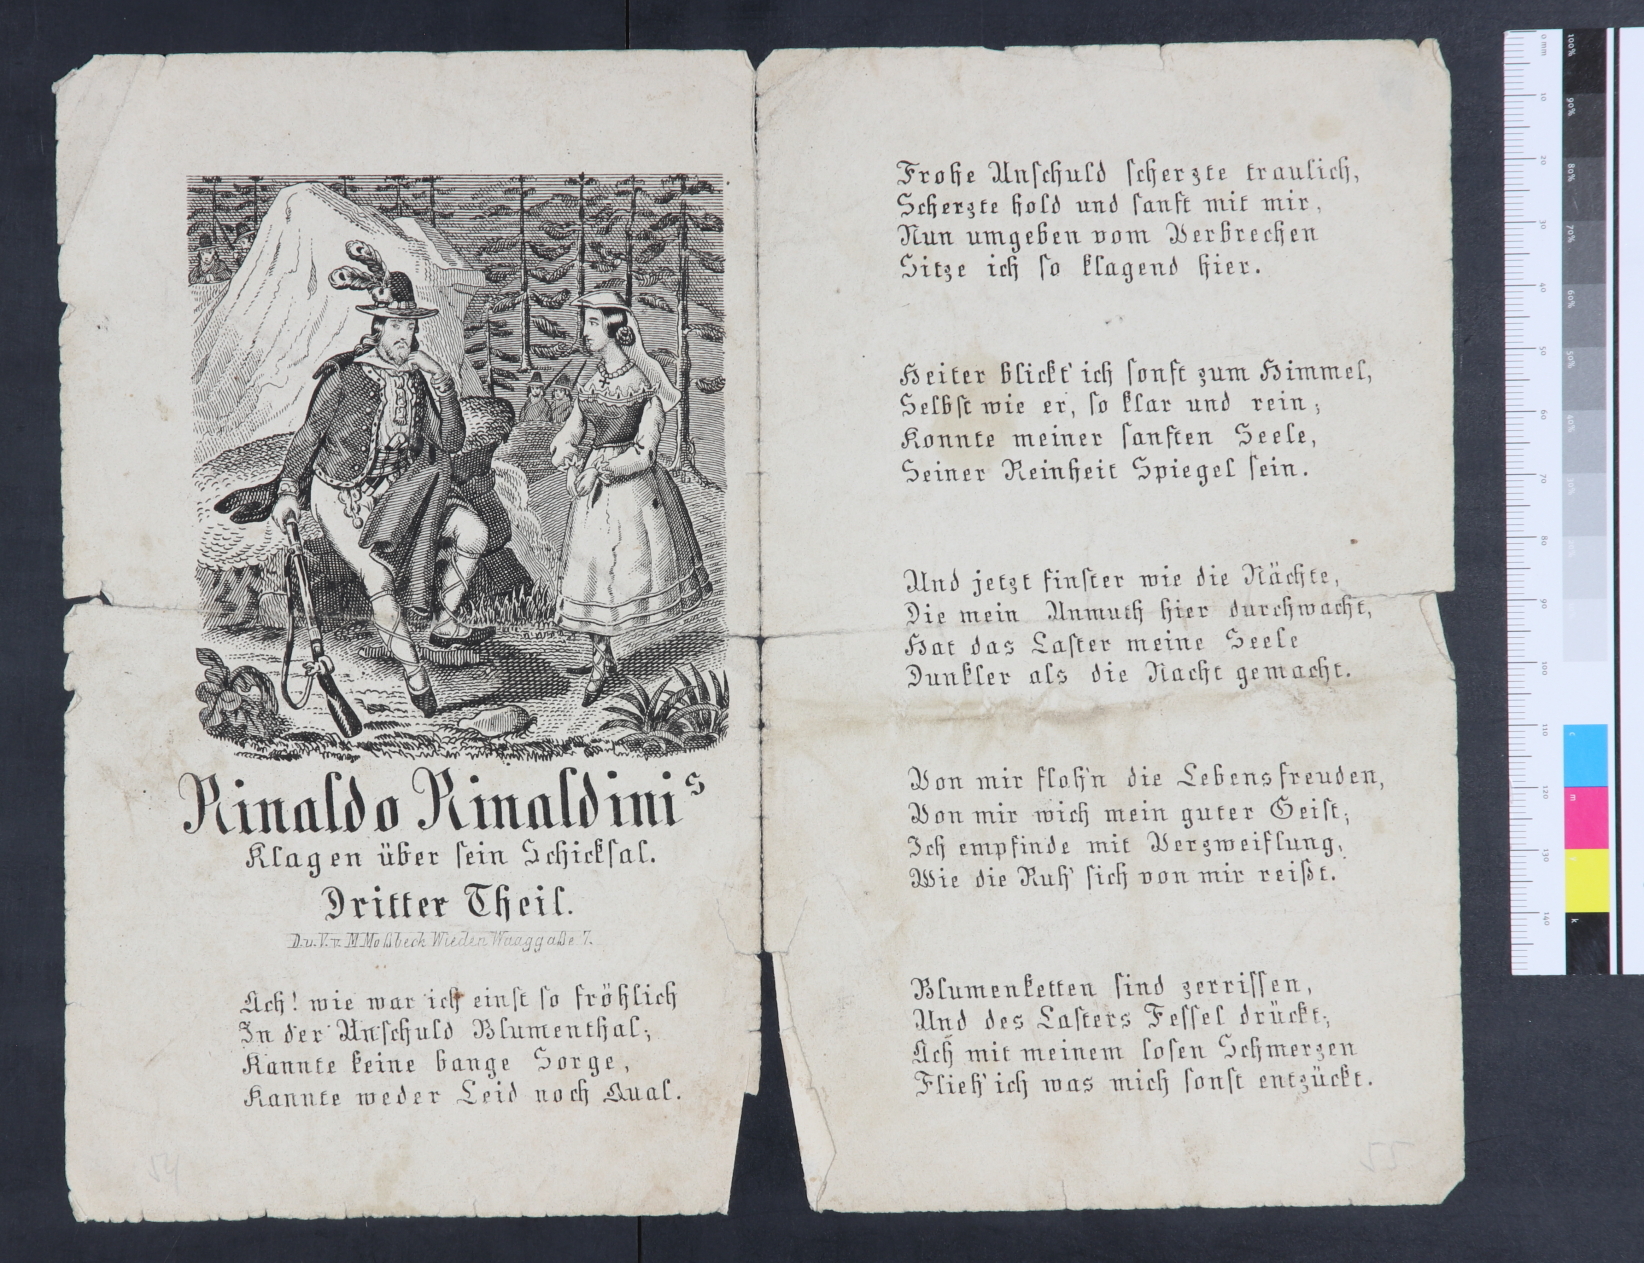 Rinaldo Rinaldinis
Klagen über sein Schicksal.
Dritter Theil.
D.u.V.v. M Moßbeck Wieden Waaggaße 7.
Ach! wie war ich einst so fröhlich
In der Unschuld Blumenthal;
Kannte keine bange Sorge,
Kannte weder Leid noch Qual.
54
Frohe Unschuld scherzte traulich,
Scherzte hold und sanft mit mir,
Nun umgeben vom Verbrechen
Sitze ich so klagend hier.
Heiter blickt' ich sonst zum Himmel,
Selbst wie er, so klar und rein;
Konnte meiner sanften Seele,
Seiner Reinheit Spiegel sein.
Und jetzt finster wie die Nächte,
Die mein Unmuth hier durchwacht,
Hat das Laster meine Seele
Dunkler als die Nacht gemacht.
Von mir floh'n die Lebensfreuden,
Von mir wich mein guter Geist;
Ich empfinde mit Verzweiflung,
Wie die Ruh' sich von mir reißt.
Blumenketten sind zerrissen,
Und des Lasters Fessel drückt;
Ach mit meinem losen Schmerzen
Flieh' ich was mich sonst entzückt.
55
0 mm
10
20
30
40
50
60
70
80
90
100
110
120
130
140
100%
90%
80%
70%
60%
50%
40%
30%
c
m
y
k